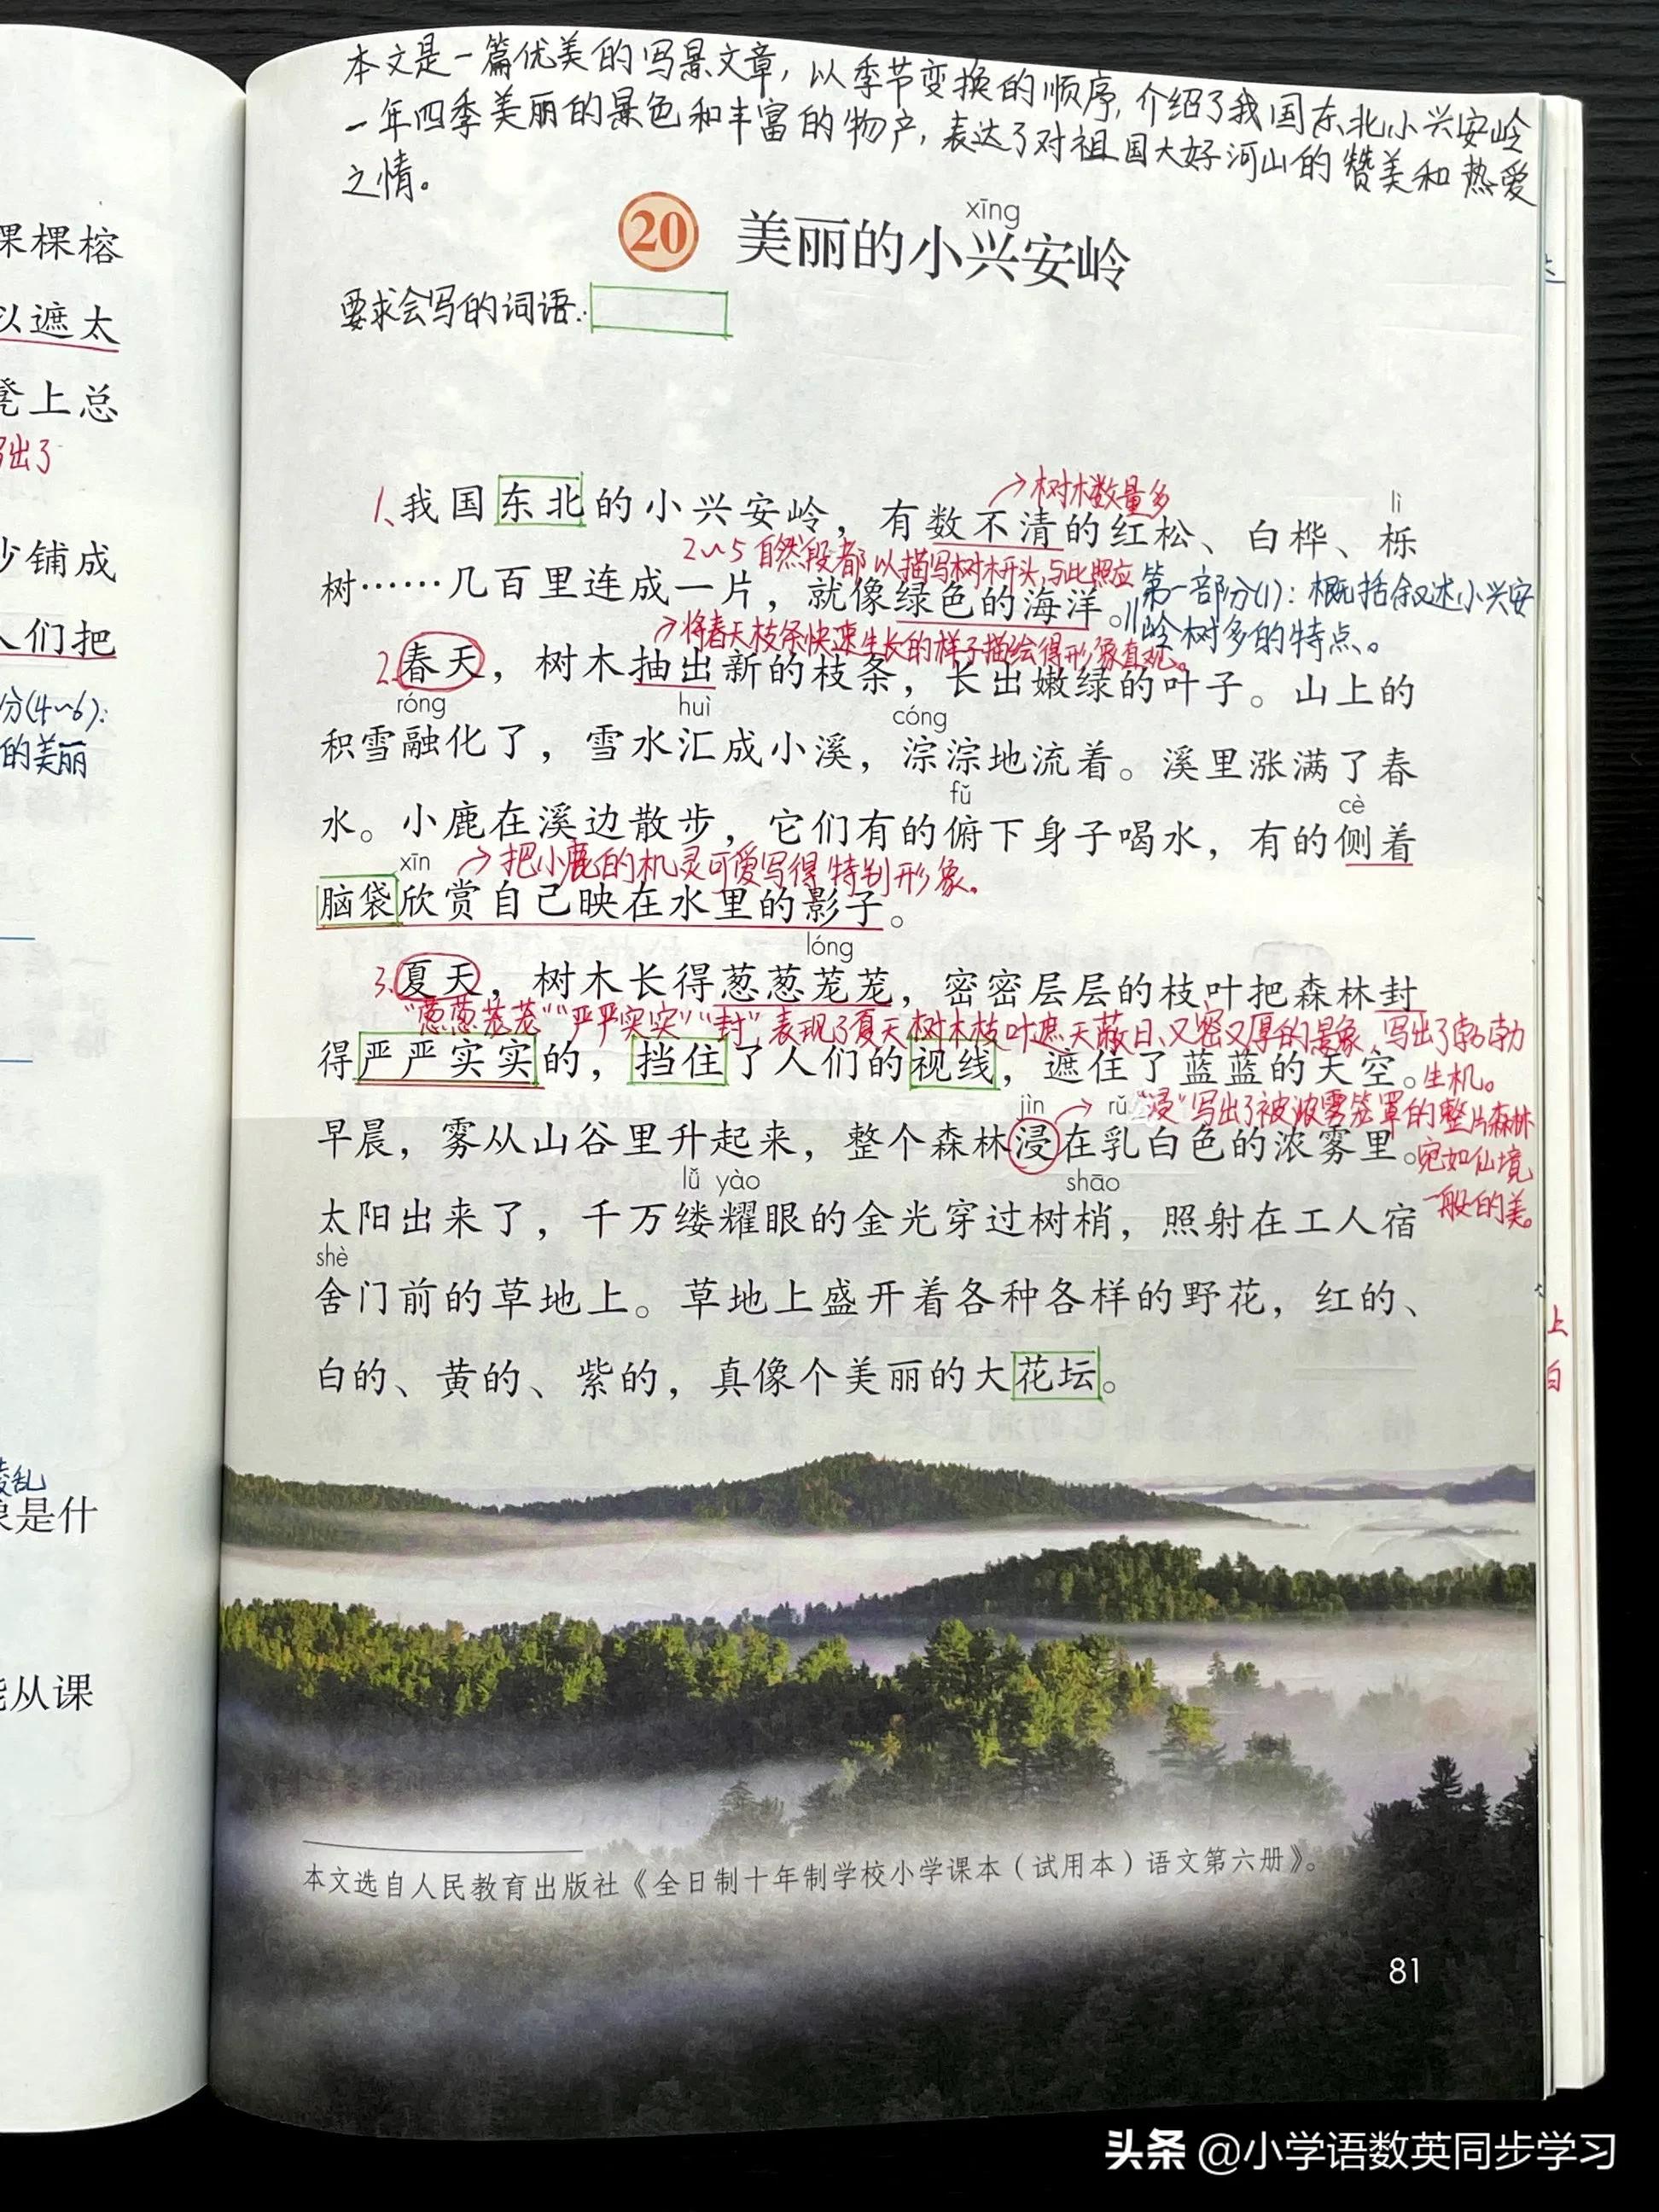 本文是一篇优美的写景文章，以季节变换的顺序，介绍了我国东北小兴安岭
一年四季美丽的景色和丰富的物产，表达了对祖国大好河山的赞美和热爱
之情。
xīng
20 美丽的小兴安岭
要求会写的词语：
→树木数量多
lì
1、我国东北的小兴安岭，有数不清的红松、白桦、栎
2~5自然段都以描写树木开头，与此照应
树……几百里连成一片，就像绿色的海洋。‖
第一部分(1)：概括叙述小兴安
岭树多的特点。
→将春天枝条快速生长的样子描绘得形象直观。
2、春天，树木抽出新的枝条，长出嫩绿的叶子。山上的
róng huì cóng
积雪融化了，雪水汇成小溪，淙淙地流着。溪里涨满了春
fǔ cè
水。小鹿在溪边散步，它们有的俯下身子喝水，有的侧着
xīn →把小鹿的机灵可爱写得特别形象。
脑袋欣赏自己映在水里的影子。
lóng
3、夏天，树木长得葱葱茏茏，密密层层的枝叶把森林封
“葱葱茏茏”“严严实实”“封”，表现了夏天树木枝叶遮天蔽日、又密又厚的景象，写出了勃勃
生机。
得严严实实的，挡住了人们的视线，遮住了蓝蓝的天空。
jìn rǔ
→“浸”写出了被浓雾笼罩的整片森林
宛如仙境
一般的美。
早晨，雾从山谷里升起来，整个森林浸在乳白色的浓雾里。
lǚ yào shāo
太阳出来了，千万缕耀眼的金光穿过树梢，照射在工人宿
shè
舍门前的草地上。草地上盛开着各种各样的野花，红的、
白的、黄的、紫的，真像个美丽的大花坛。
本文选自人民教育出版社《全日制十年制学校小学课本（试用本）语文第六册》。
81
棵榕
以遮太
凳上总
出了
铺成
人们把
分(4~6)：
的美丽
乱
是什
从课
上
白
头条 @小学语数英同步学习